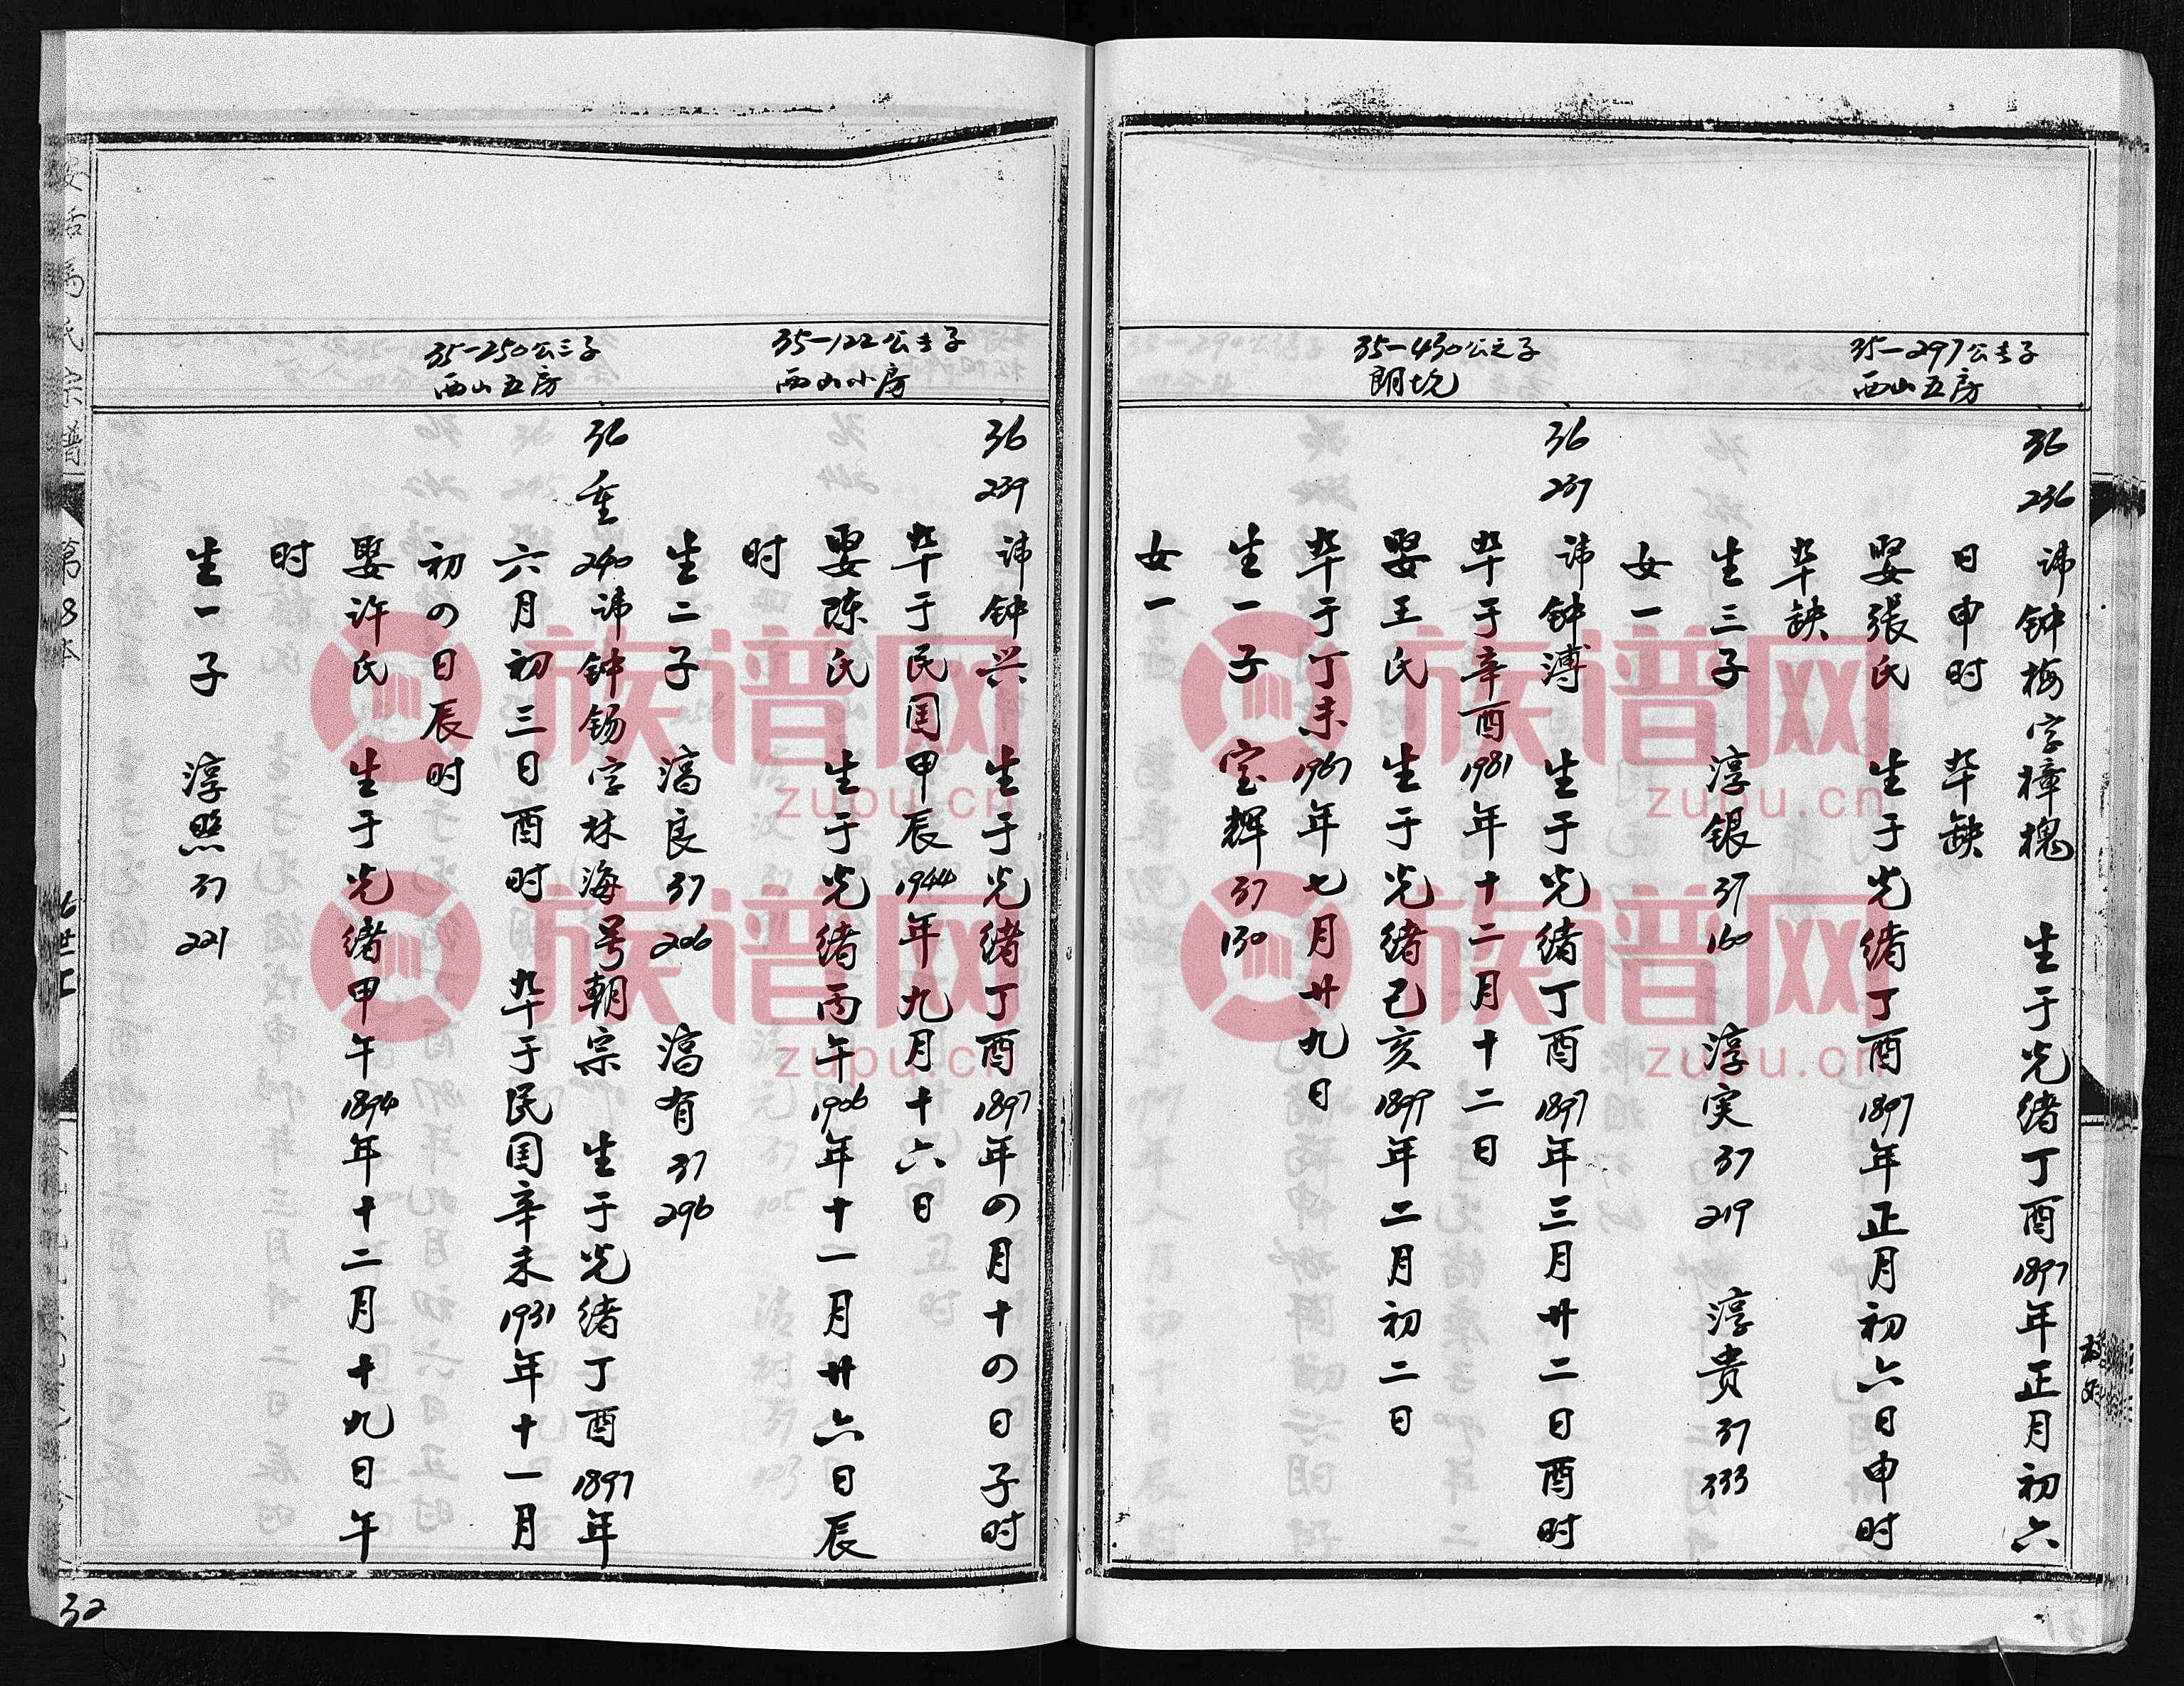 35-297公长子
西山五房
36 236 讳钟梅字樟槐 生于光绪丁酉1897年正月初六
日申时 卒缺
娶張氏 生于光绪丁酉1897年正月初六日申时
卒缺
生三子 淳银37 160 淳实37 219 淳贵37 333
女一
35-430公之子
朗坑
36 237 讳钟溥 生于光绪丁酉1897年三月廿二日酉时
卒于辛酉1981年十二月十二日
娶王氏 生于光绪己亥1899年二月初二日
卒于丁未1967年七月廿九日
生一子 宝辉37 130
女一
35-122公长子
西山小房
36 239 讳钟兴 生于光绪丁酉1897年の月十の日子时
卒于民国甲辰1944年九月十六日
娶陈氏 生于光绪丙午1906年十一月廿六日辰
时
生二子 滈良37 206 滈有37 296
35-250公三子
西山五房
36 重 240 讳钟锡字林海号朝宗 生于光绪丁酉1897年
六月初三日酉时 卒于民国辛未1931年十一月
初の日辰时
娶许氏 生于光绪甲午1894年十二月十九日午
时
生一子 淳照37 221
馮氏宗譜
第8本
32
族谱网
zupu.cn
族谱网
zupu.cn
族谱网
zupu.cn
族谱网
zupu.cn